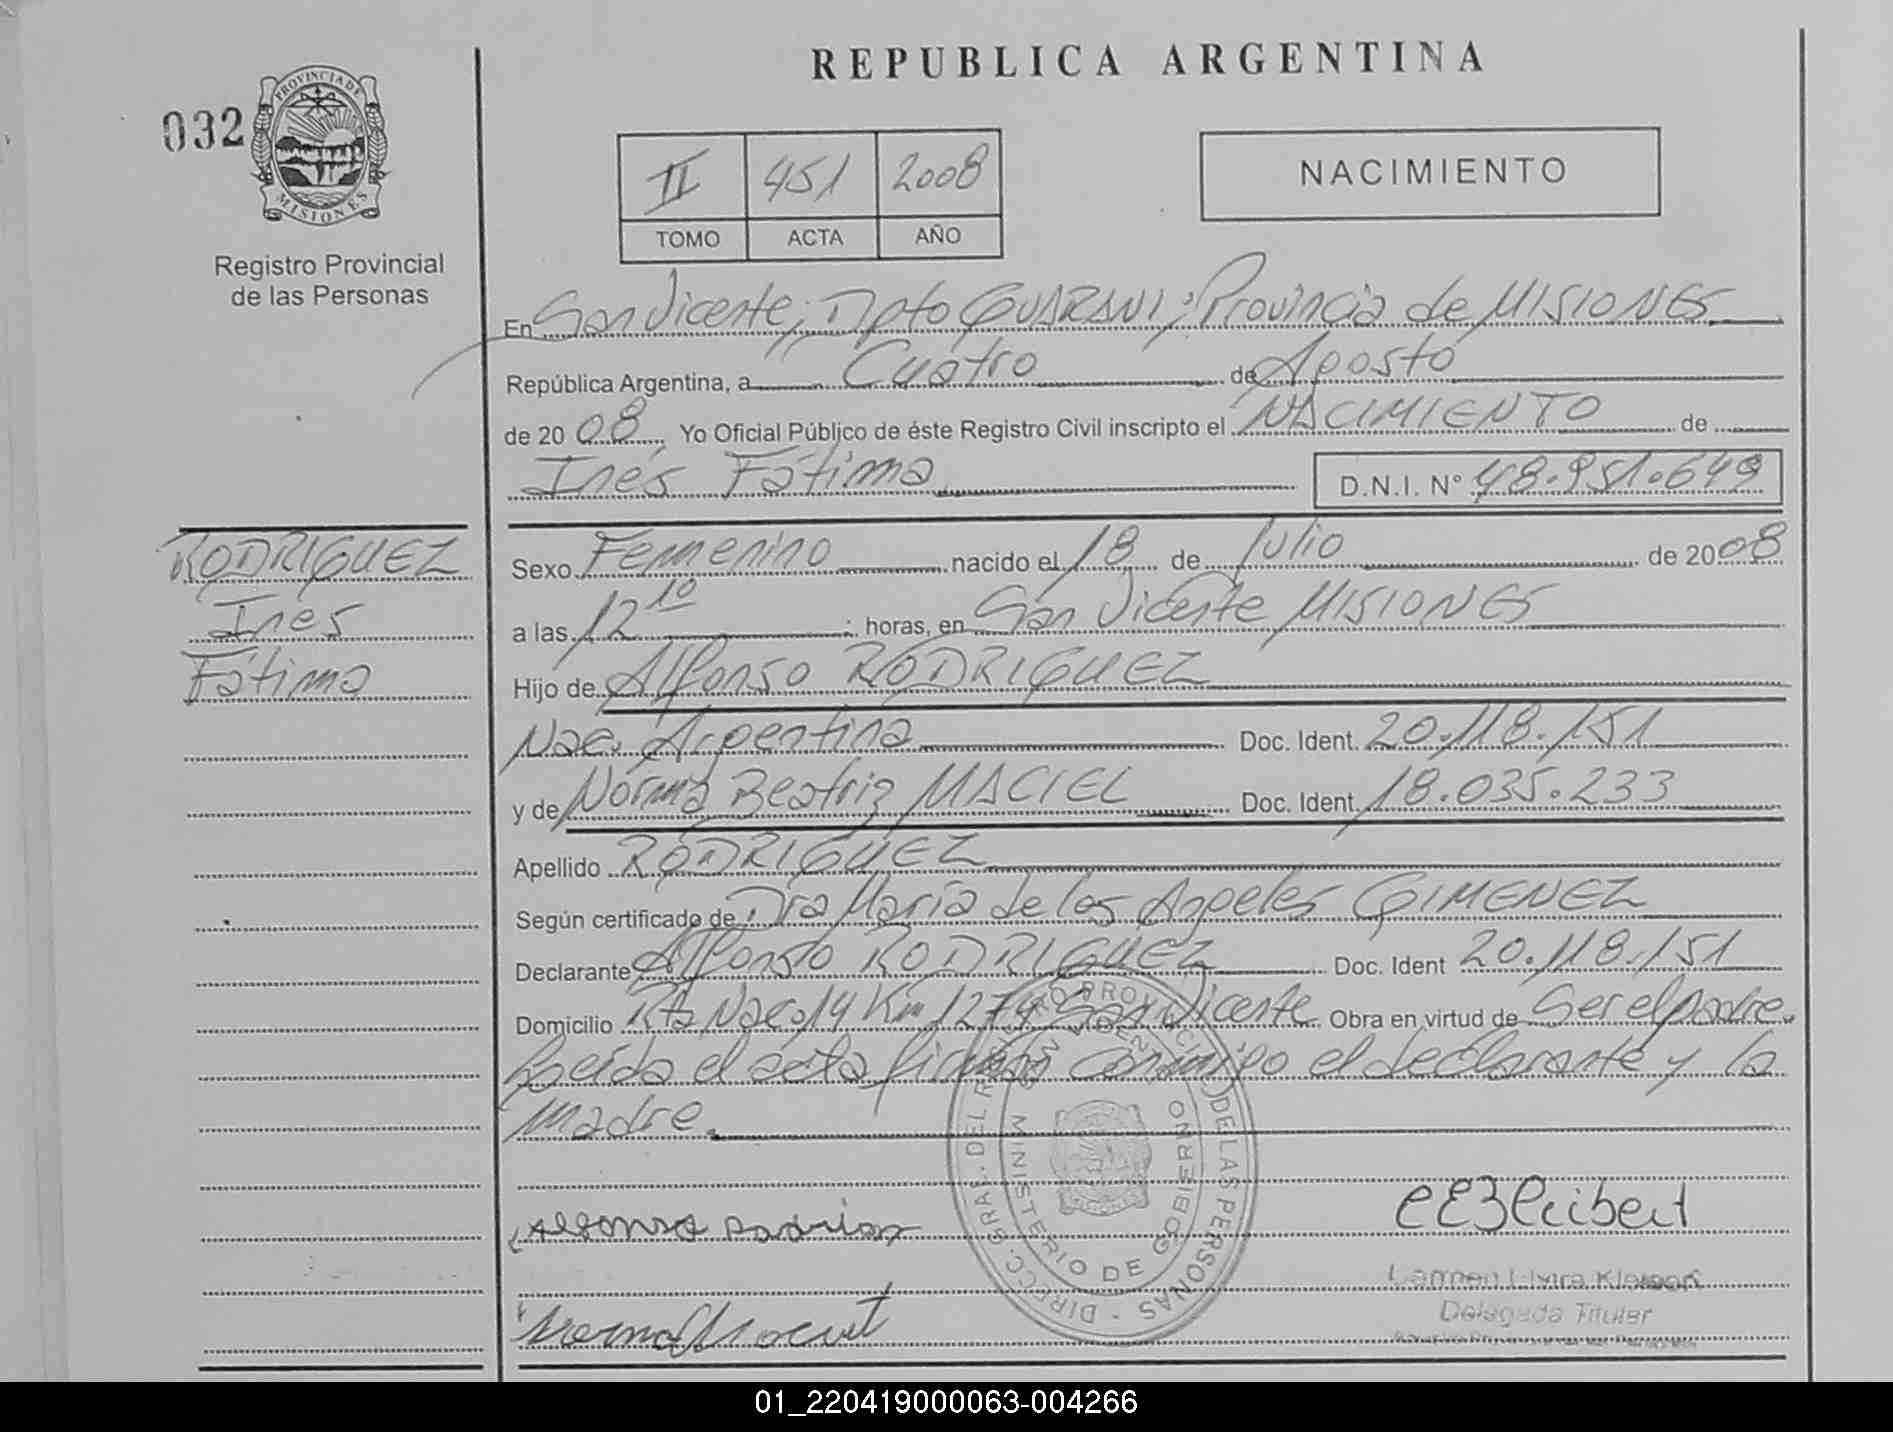 REPUBLICA ARGENTINA
032
PROVINCIA DE
MISIONES
Registro Provincial
de las Personas
II 451 2008
TOMO ACTA AÑO
NACIMIENTO
En San Vicente; Dpto GUARANI; Provincia de MISIONES
República Argentina, a Cuatro de Agosto
de 2008, Yo Oficial Público de éste Registro Civil inscripto el NACIMIENTO de
Inés Fátima
D.N.I. N° 48.951.649
RODRIGUEZ
Inés
Fátima
Sexo Femenino nacido el 18 de Julio de 2008
a las 12 10 horas, en San Vicente MISIONES
Hijo de Alfonso RODRIGUEZ
Nac. Argentina Doc. Ident. 20.118.151
y de Norma Beatriz MACIEL Doc. Ident. 18.035.233
Apellido RODRIGUEZ
Según certificado de: Dra María de los Angeles GIMENEZ
Declarante Alfonso RODRIGUEZ Doc. Ident 20.118.151
Domicilio Rta Nac. 14 Km 1279 San Vicente Obra en virtud de Ser el padre.
Leída el acta firman conmigo el declarante y la
madre.
DIRECC. GRAL. DEL REGISTRO PROVINCIAL DE LAS PERSONAS
MINISTERIO DE GOBIERNO
Carmen Elvira
Delegada Titular
01_220419000063-004266